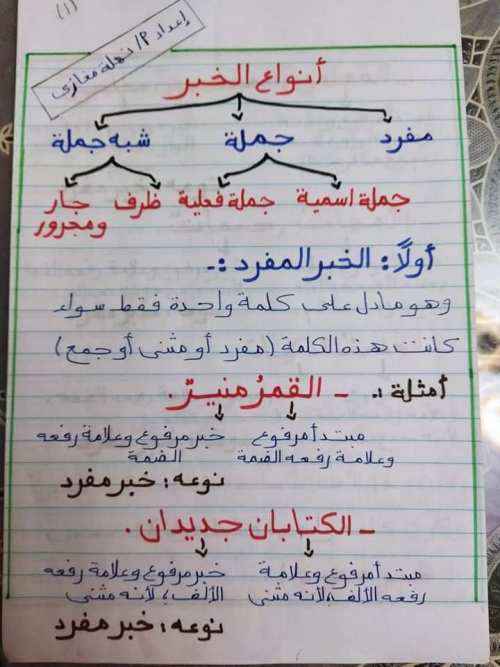 (١)
إعداد م/ نهلة مغازى
أنواع الخبر
مفرد جملة شبه جملة
جملة اسمية جملة فعلية ظرف جار
ومجرور
أولاً: الخبر المفرد :-
وهو مادل على كلمة واحدة فقط سواء
كانت هذه الكلمة (مفرد أو مثنى أو جمع)
أمثلة :- - القمرُ منيرٌ.
مبتدأ مرفوع خبر مرفوع وعلامة رفعه
وعلامة رفعه الضمة الضمة
نوعه : خبر مفرد
- الكتابان جديدان .
مبتدأ مرفوع وعلامة خبر مرفوع وعلامة رفعه
رفعه الألف لأنه مثنى الألف ؛ لأنه مثنى
نوعه : خبر مفرد